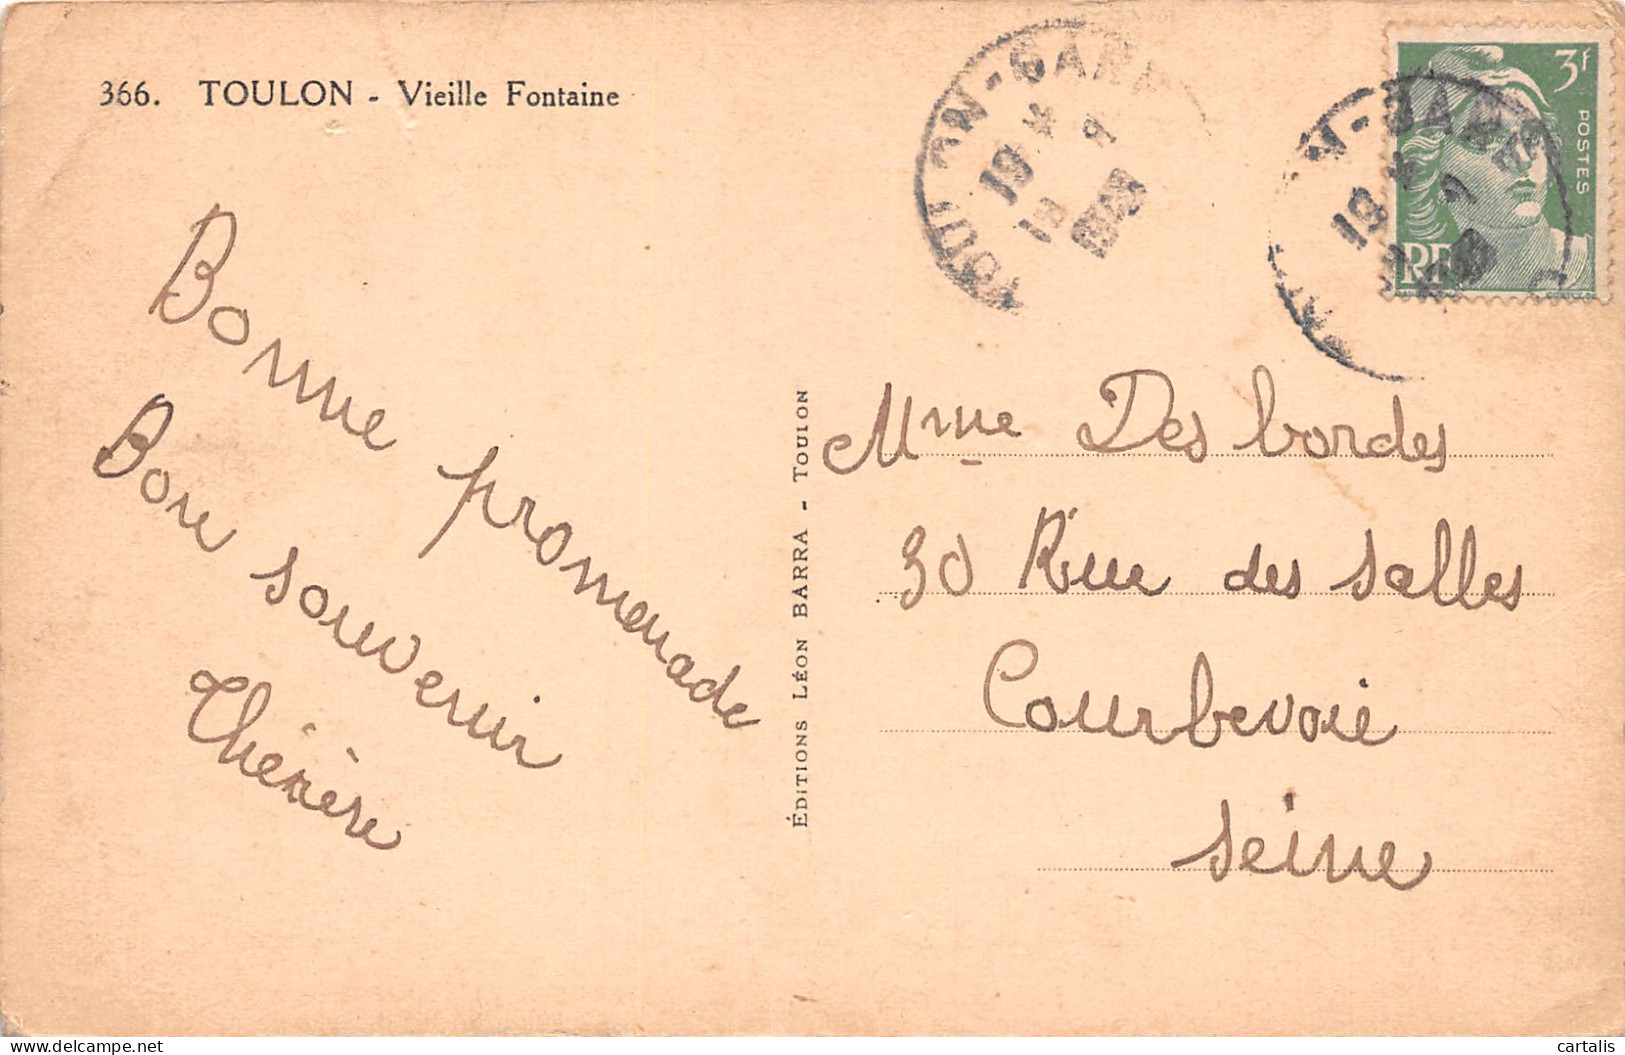 366. TOULON - Vieille Fontaine
Bonne promenade
Bon souvenir
Thérèse
ÉDITIONS LÉON BARRA - TOULON
TOULON-GARE
19 *
18
3f
POSTES
RF
Mme Des bordes
30 Rue des Salles
Courbevoie
Seine
www.delcampe.net
cartalis